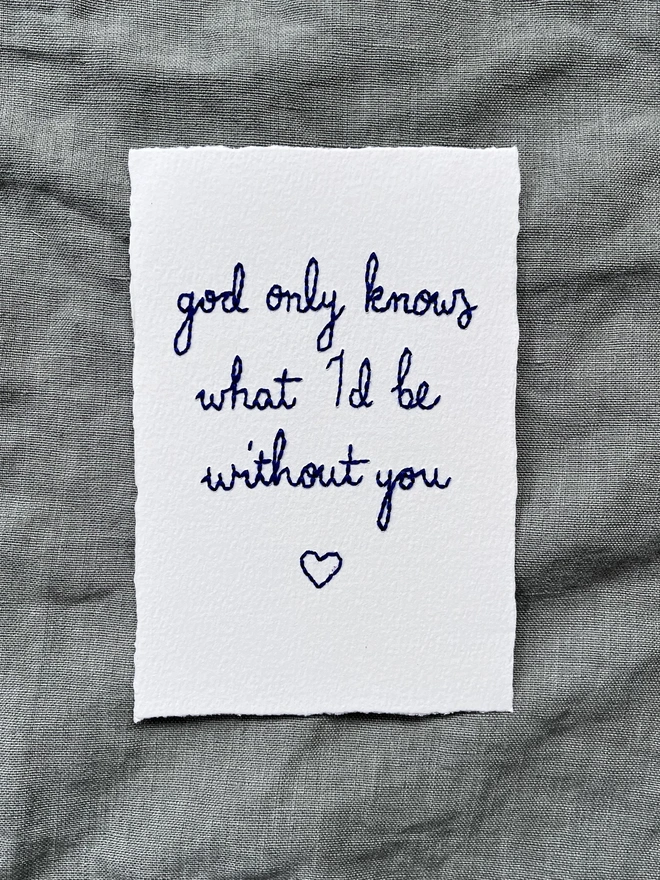 god only knows
what I'd be
without you